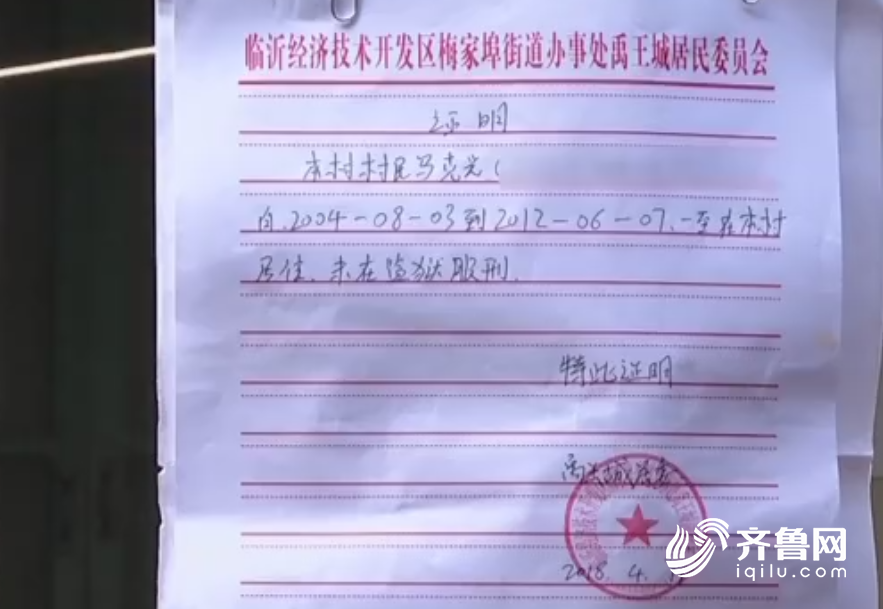 临沂经济技术开发区梅家埠街道办事处禹王城居民委员会
证明
本村村民马克光(
自.2004-08-03到2012-06-07.一至在本村
居住.未在监狱服刑.
特此证明
禹王城居委
2018.4.
齐鲁网
iqilu.com